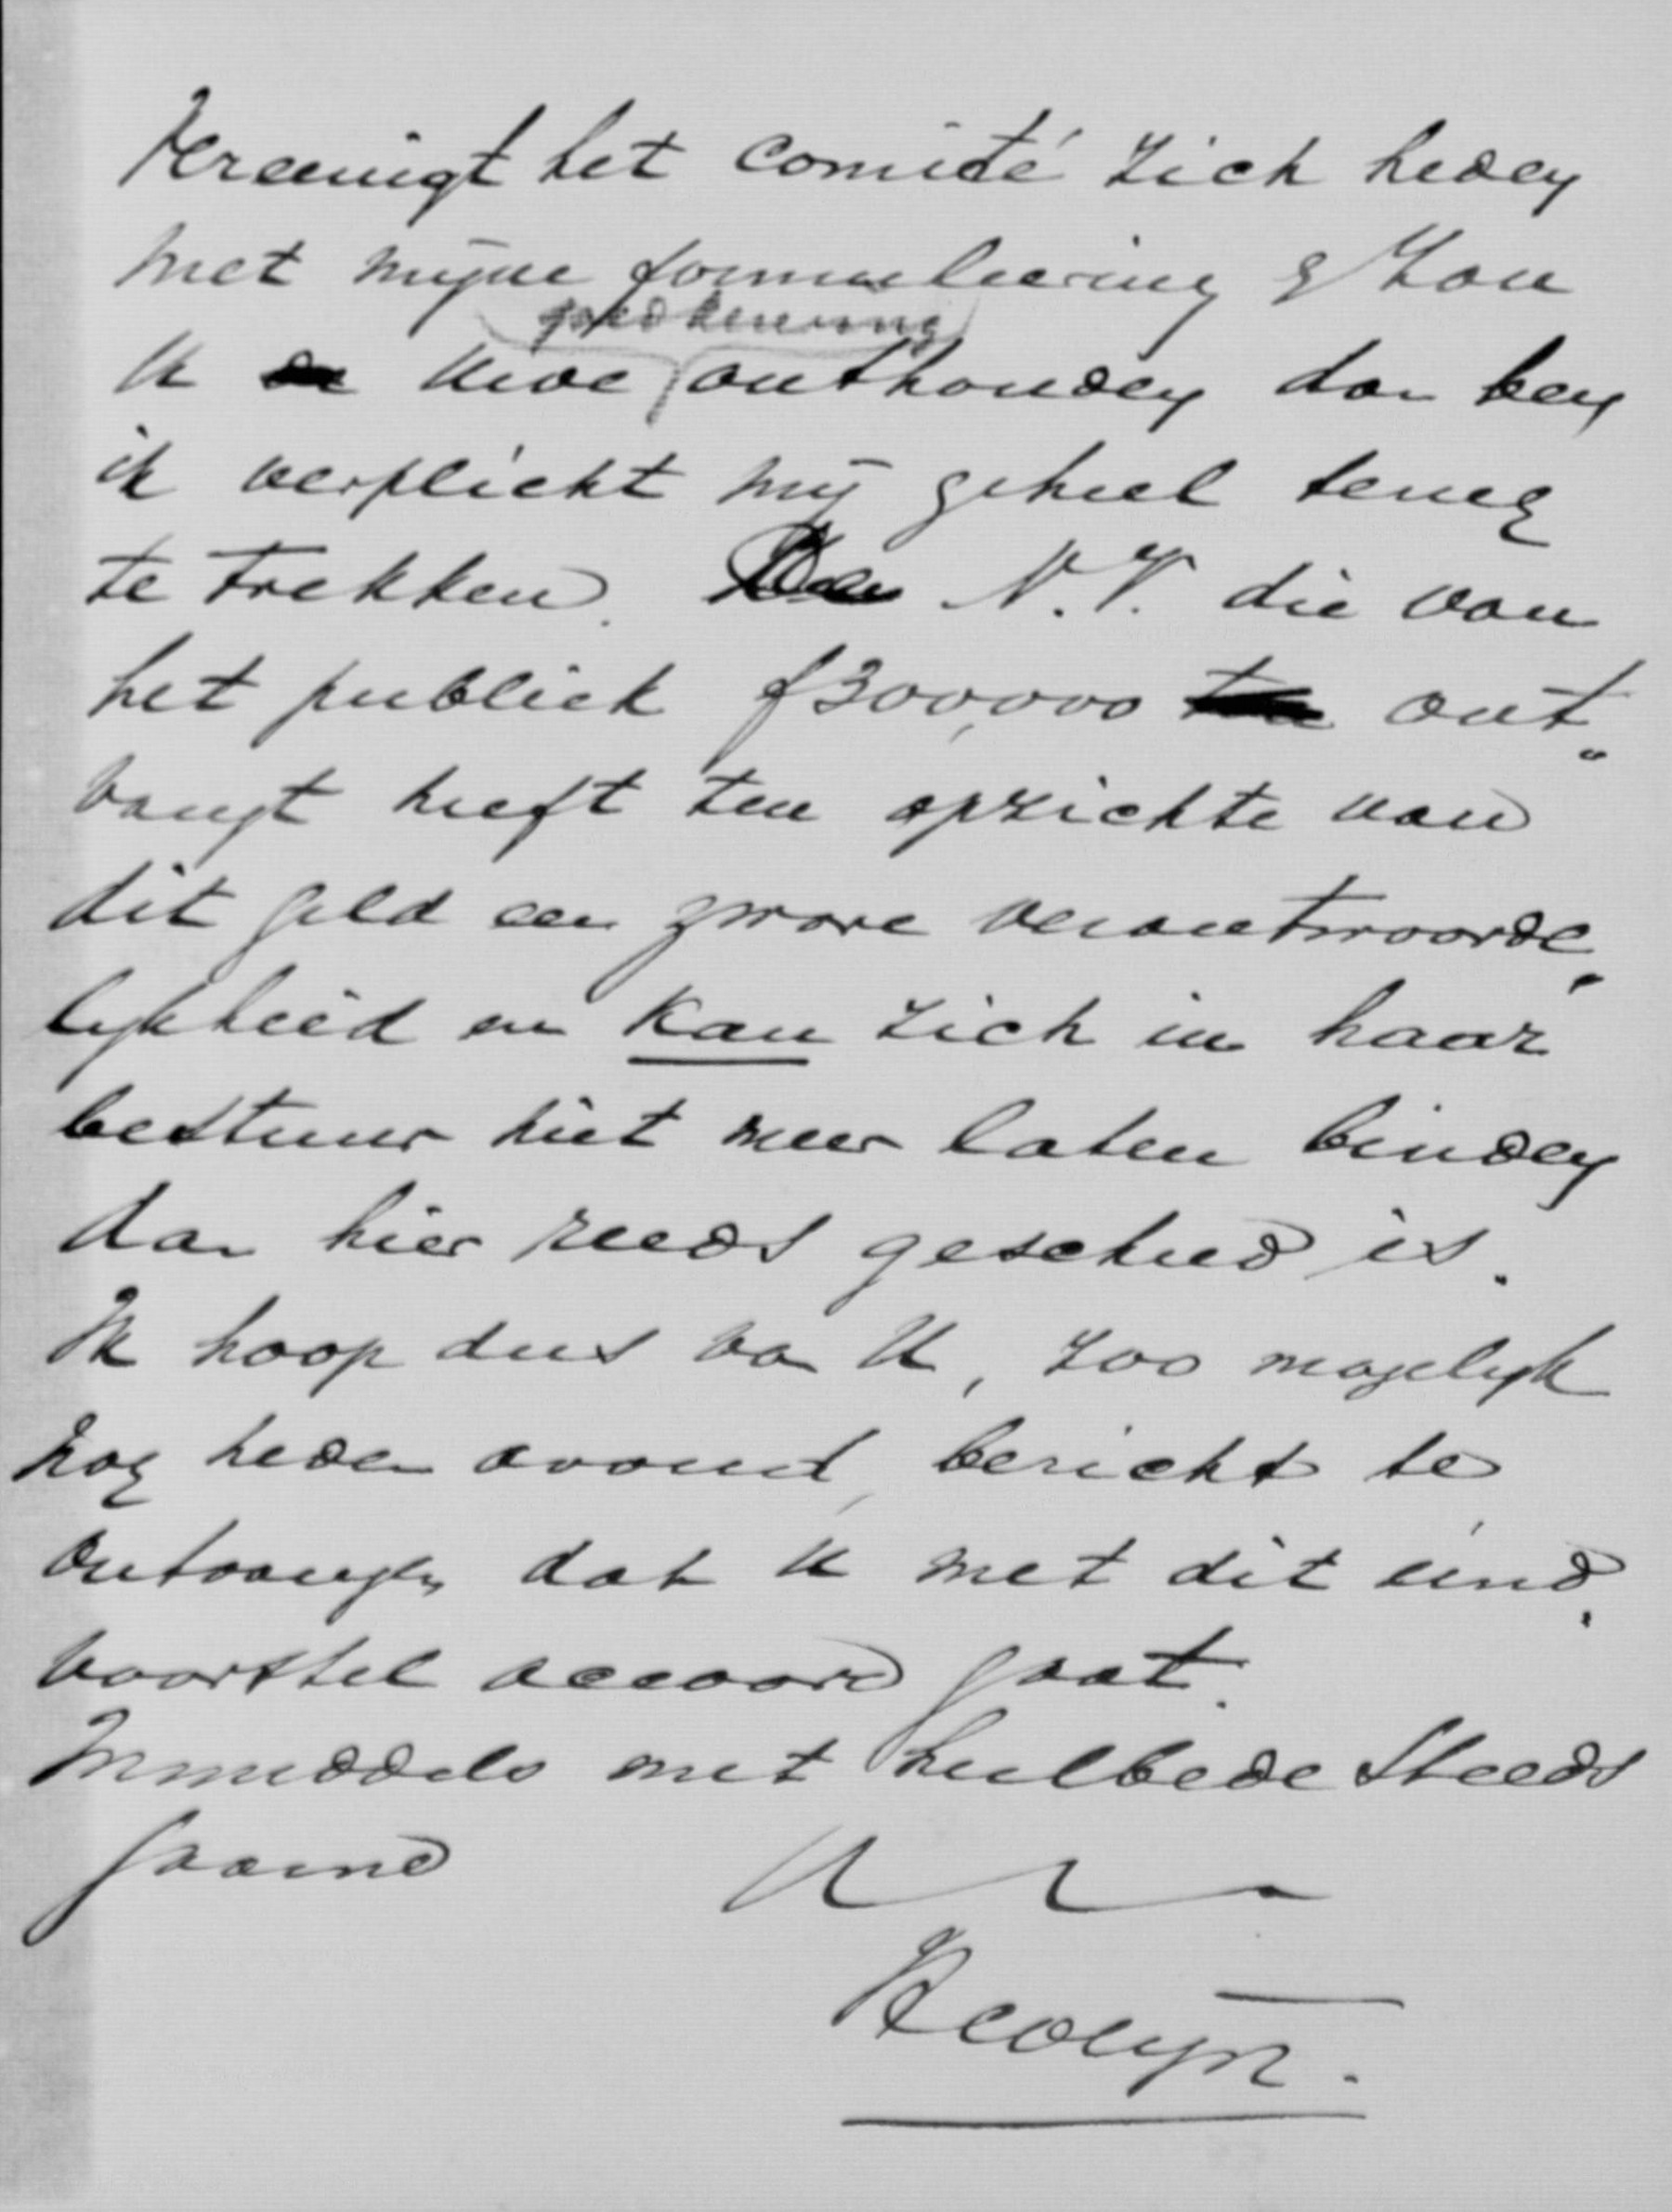 Vereenigt het Comité zich heden
met mijne formuleering & Zou
goedkeuring
U Uwe onthouden dan ben
ik verplicht mij geheel terug
te trekken. Een N.V. die van
het publiek f300,000 ont„
vangt heeft ten opzichte van
dit geld een zware verantwoorde„
lijkheid en kan zich in haar
bestuur niet meer laten binden
dan hier reeds geschied is.
Ik hoop dus van U, zoo mogelijk
nog heden avond, bericht te
ontvangen dat U met dit eind„
voorstel accoord gaat.
Inmiddels met heilbede Steeds
gaarne